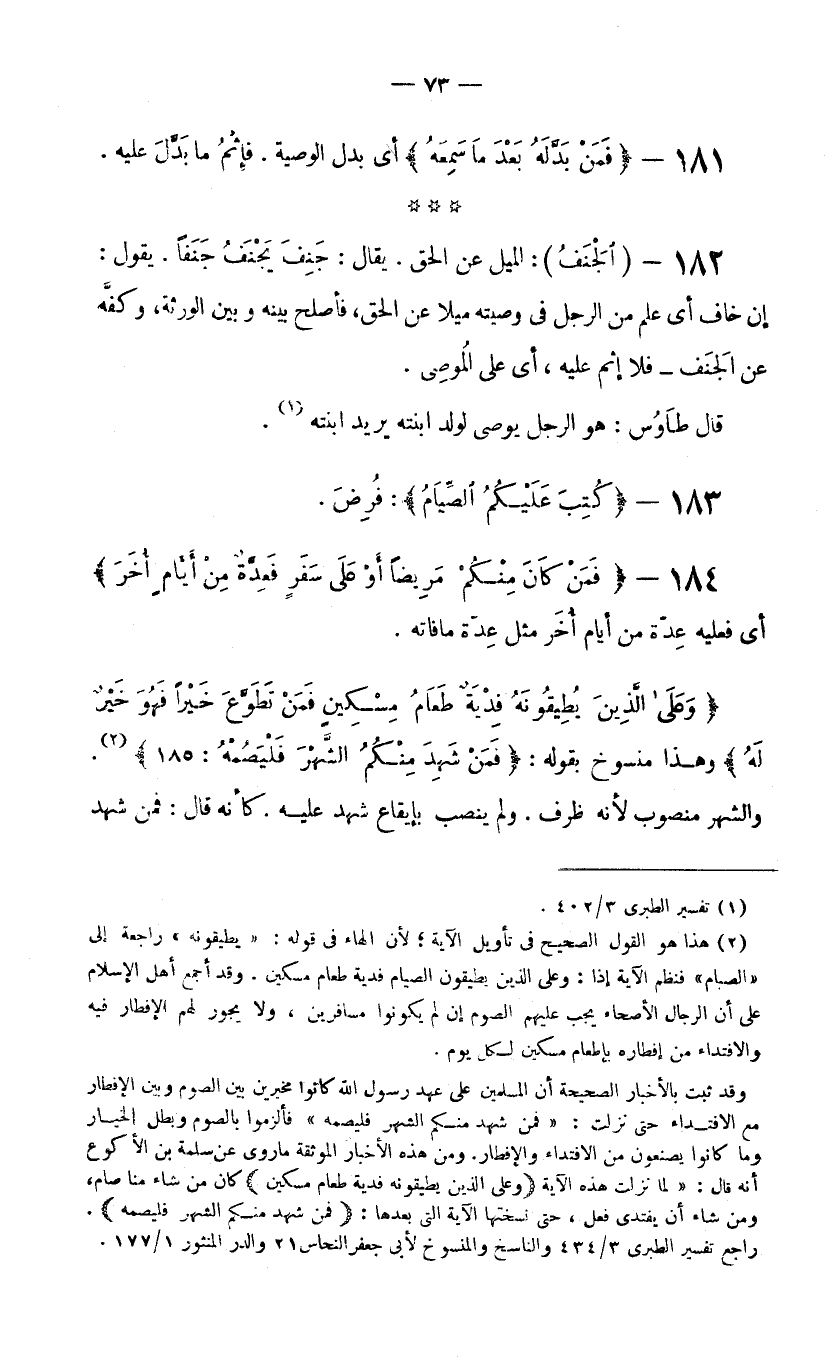 — ٧٣ —
١٨١ — ﴿ فَمَنْ بَدَّلَهُ بَعْدَ مَا سَمِعَهُ ﴾ أى بدل الوصية . فإِثْمُ ما بَدَّلَ عليه .
☆ ☆ ☆
١٨٢ — ( ٱلْجَنَفُ ) : الميل عن الحق . يقال : جَنِفَ يَجْنَفُ جَنَفًا . يقول :
إن خاف أى علم من الرجل فى وصيته ميلا عن الحق، فأصلح بينه وبين الورثة، وكفَّه
عن الَجنَف ــ فلا إثم عليه ، أى على الُموصِى .
قال طَاوُس : هو الرجل يوصى لولد ابنته يريد ابنته (١) .
١٨٣ — ﴿ كُتِبَ عَلَيْكُمُ ٱلصِّيَامُ ﴾ : فُرِضَ .
١٨٤ — ﴿ فَمَنْ كَانَ مِنْكُمْ مَرِيضًا أَوْ عَلَى سَفَرٍ فَعِدَّةٌ مِنْ أَيَّامٍ أُخَرَ ﴾
أى فعليه عِدّة من أيام أُخَر مثل عِدّة مافاته .
﴿ وَعَلَى الَّذِينَ يُطِيقُونَهُ فِدْيَةٌ طَعَامُ مِسْكِينٍ فَمَنْ تَطَوَّعَ خَيْرًا فَهُوَ خَيْرٌ
لَهُ ﴾ وهذا منسوخ بقوله : ﴿ فَمَنْ شَهِدَ مِنْكُمُ الشَّهْرَ فَلْيَصُمْهُ : ١٨٥ ﴾ (٢) .
والشهر منصوب لأنه ظرف . ولم ينصب بإيقاع شهد عليه . كأنه قال : فمن شهد
(١) تفسير الطبرى ٤٠٢/٣ .
(٢) هذا هو القول الصحيح فى تأويل الآية ؛ لأن الهاء فى قوله : « يطيقونه » راجعة إلى
«الصيام» فنظم الآية إذا : وعلى الذين يطيقون الصيام فدية طعام مسكين . وقد أجمع أهل الإسلام
على أن الرجال الأصحاء يجب عليهم الصوم إن لم يكونوا مسافرين ، ولا يجوز لهم الإفطار فيه
والافتداء من إفطاره بإطعام مسكين لكل يوم .
وقد ثبت بالأخبار الصحيحة أن المسلمين على عهد رسول الله كانوا مخيرين بين الصوم وبين الإفطار
مع الافتداء حتى نزلت : « فمن شهد منكم الشهر فليصمه » فألزموا بالصوم وبطل الخيار
وما كانوا يصنعون من الافتداء والإفطار. ومن هذه الأخبار الموثقة ماروى عن سلمة بن الأكوع
أنه قال : « لما نزلت هذه الآية ﴿وعلى الذين يطيقونه فدية طعام مسكين ﴾ كان من شاء منا صام،
ومن شاء أن يفتدى فعل ، حتى نسختها الآية التى بعدها : ﴿ فمن شهد منكم الشهر فليصمه ﴾ .
راجع تفسير الطبرى ٤٣٤/٣ والناسخ والمنسوخ لأبى جعفر النحاس ٢١ والدر المنثور ١٧٧/١ .